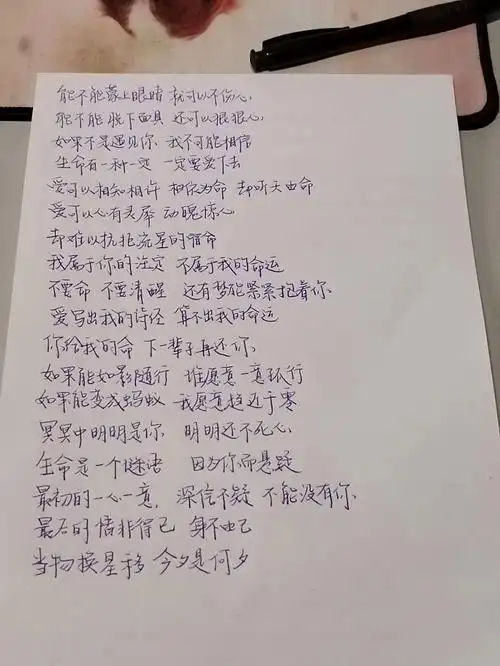 能不能蒙上眼睛 就可以不伤心
能不能脱下面具 还可以狠狠心
如果不是遇见你 我不可能相信
生命有一种一定 一定要爱下去
爱可以相知相许 相依为命 却听天由命
爱可以心有灵犀 动魄惊心
却难以抗拒流星的宿命
我属于你的注定 不属于我的命运
不要命 不要清醒 还有梦能紧紧抱着你
爱写出我的诗经 算不出我的命运
你给我的命 下一辈子再还你
如果能如影随行 谁愿意一意孤行
如果能变成蚂蚁 我愿意趋近于零
冥冥中明明是你 明明还不死心
生命是一个谜语 因为你而悬疑
最初的一心一意, 深信不疑 不能没有你
最后的情非得已 身不由己
当物换星移 今夕是何夕